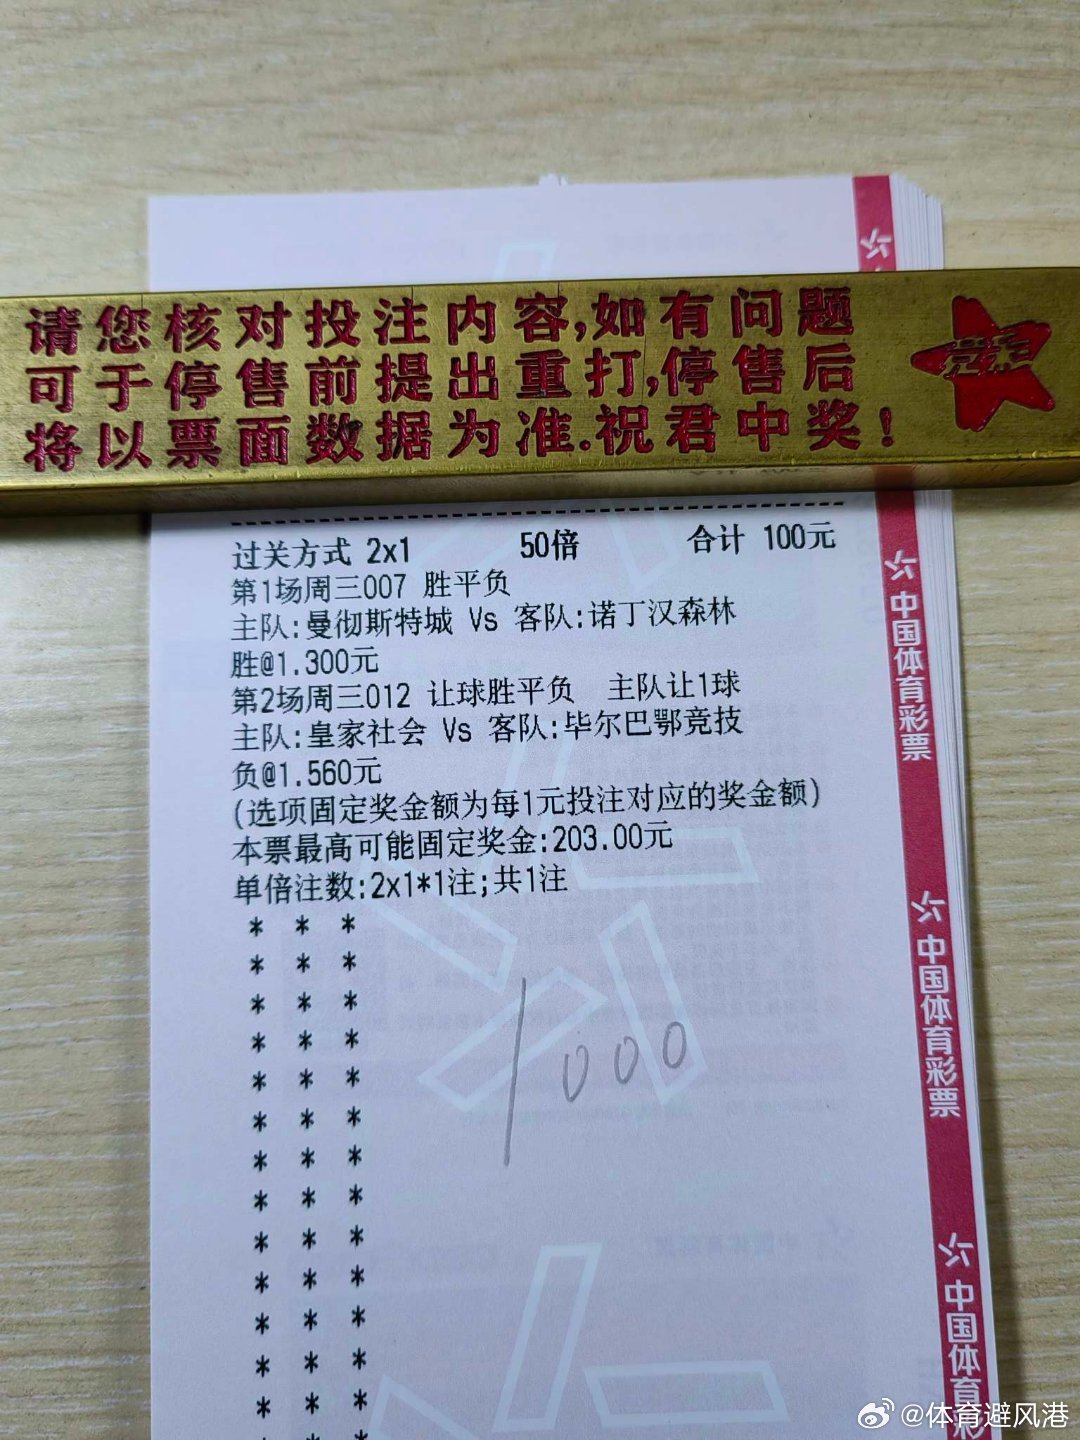 请您核对投注内容,如有问题
可于停售前提出重打,停售后
将以票面数据为准.祝君中奖!
过关方式 2x1 50倍 合计 100元
第1场周三007 胜平负
主队:曼彻斯特城 Vs 客队:诺丁汉森林
胜@1.300元
第2场周三012 让球胜平负 主队让1球
主队:皇家社会 Vs 客队:毕尔巴鄂竞技
负@1.560元
(选项固定奖金额为每1元投注对应的奖金额)
本票最高可能固定奖金:203.00元
单倍注数:2x1*1注;共1注
* * *
* * *
* * *
* * *
* * *
* * *
* * *
* * *
* * *
* * *
* * *
* * *
* * *
1000
中国体育彩票
中国体育彩票
中国体育彩
@体育避风港